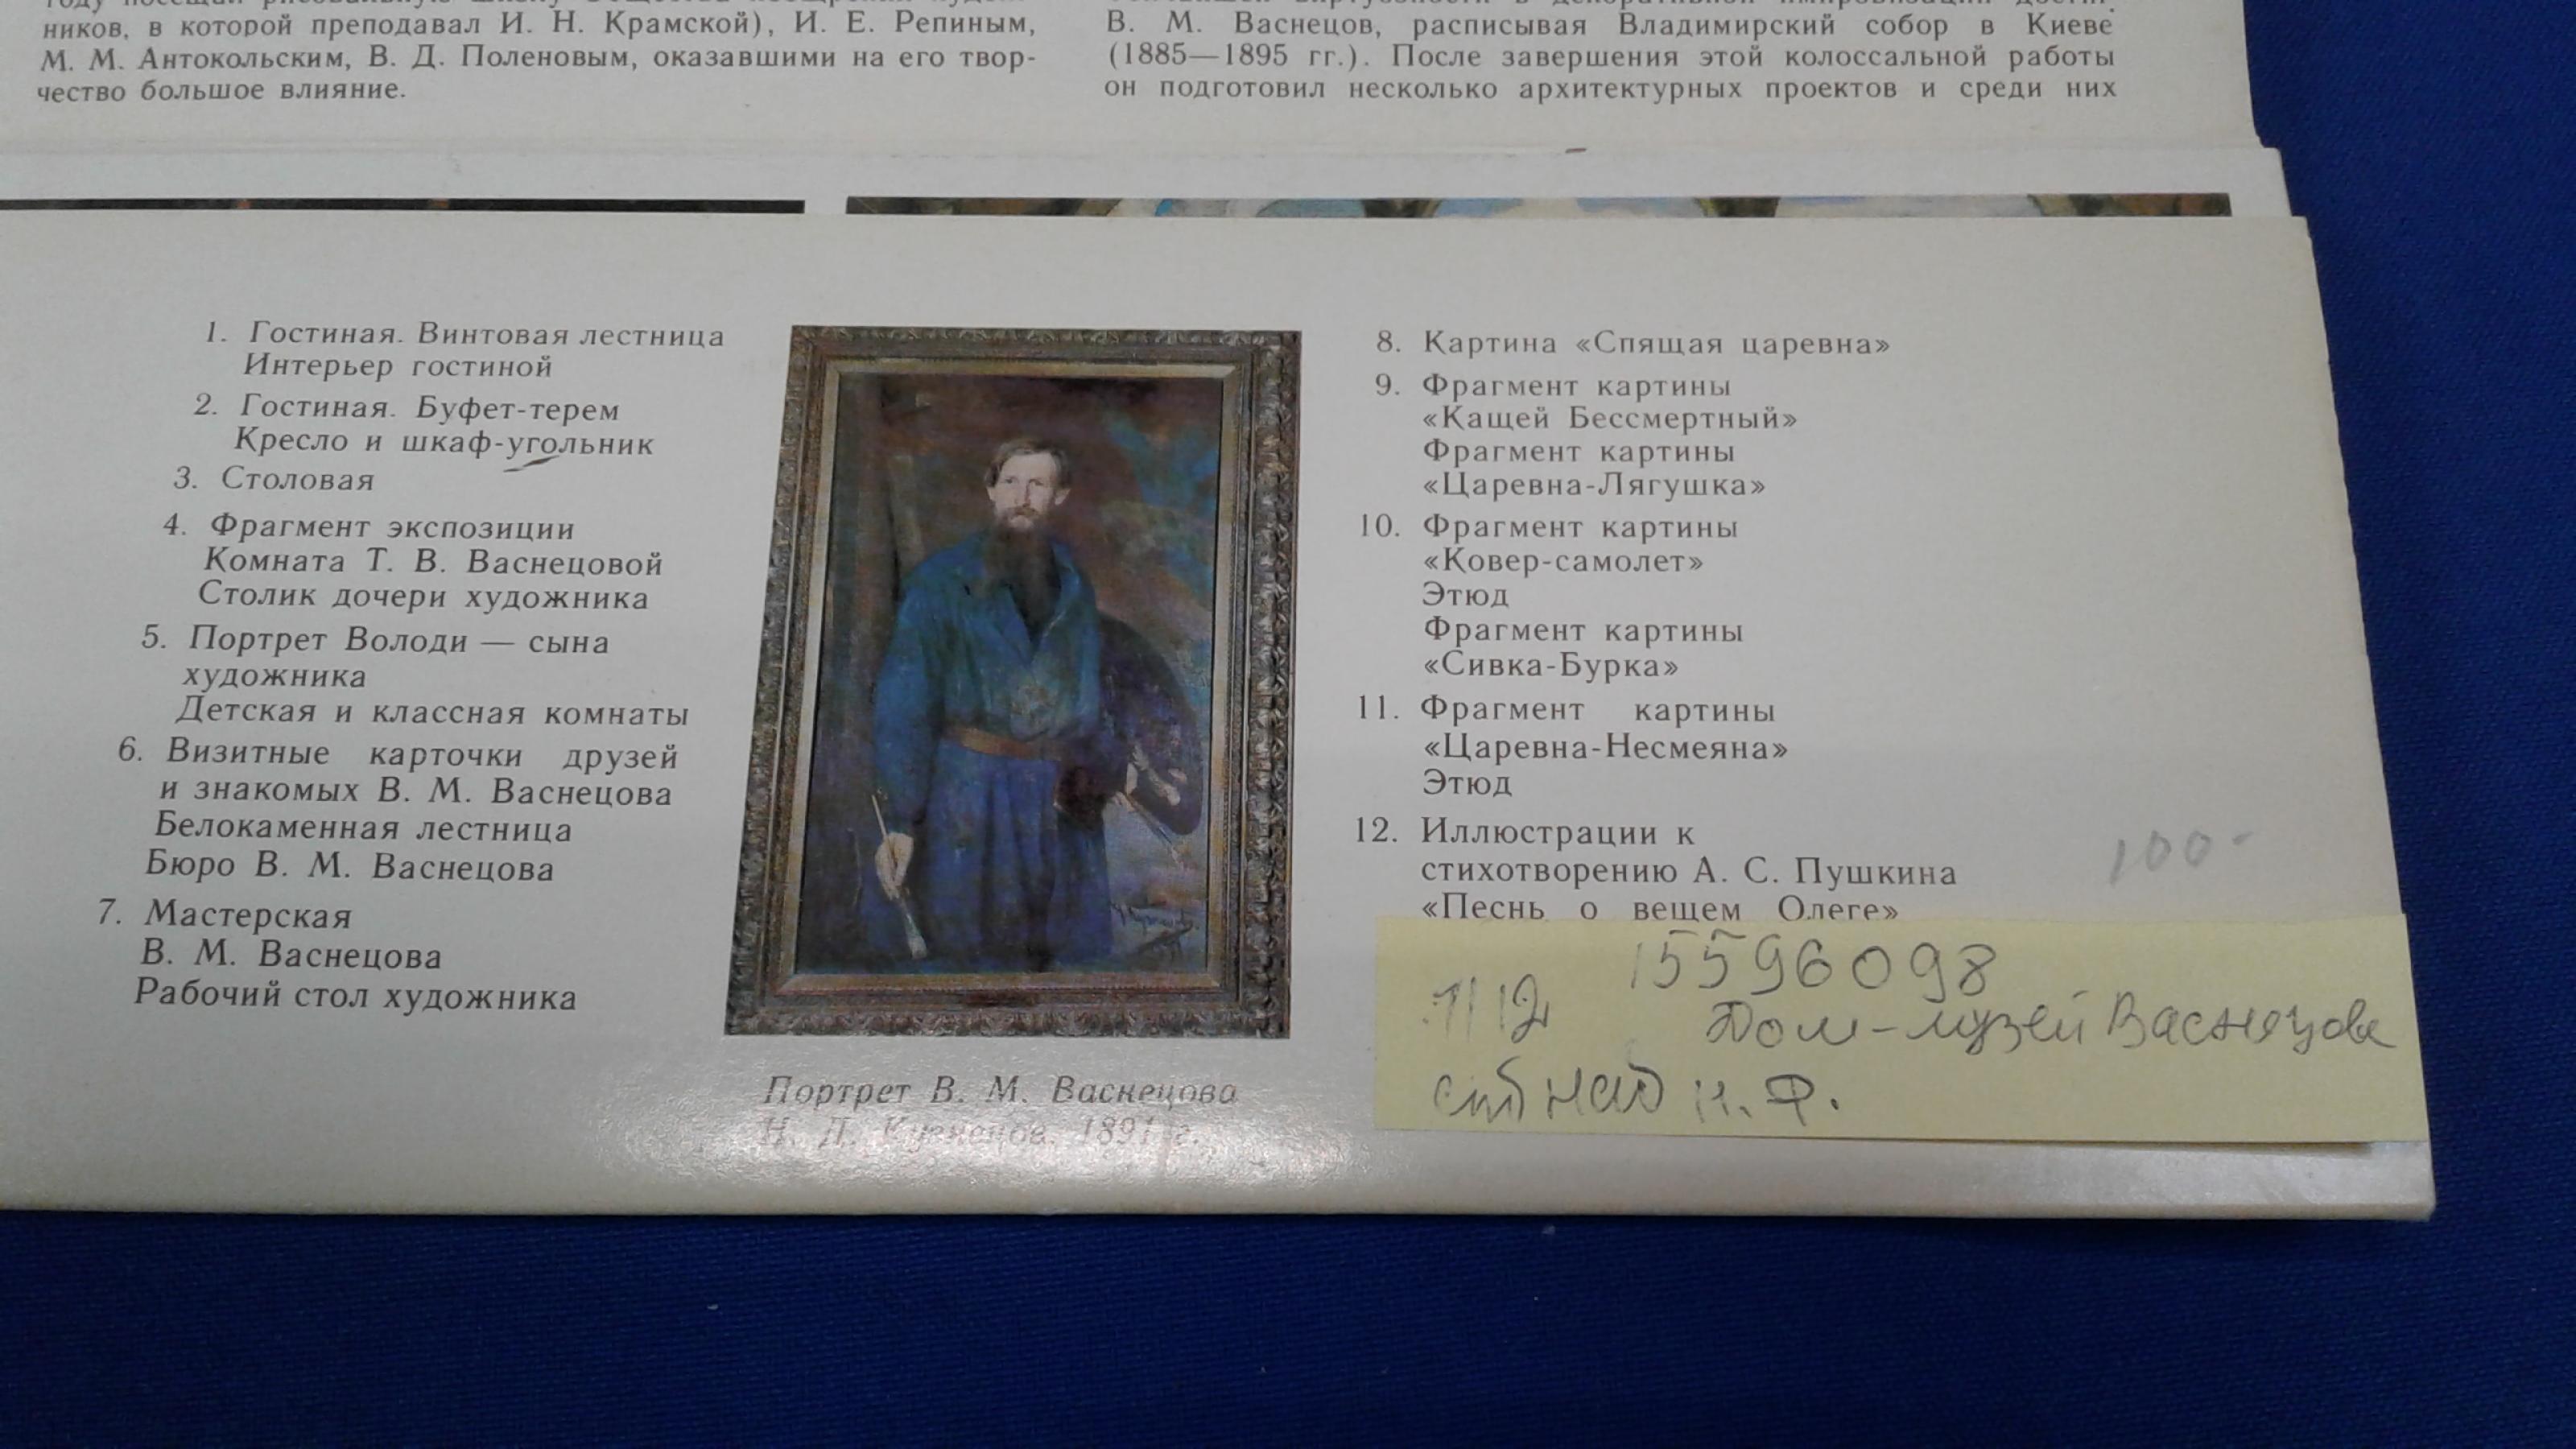 ников, в которой преподавал И. Н. Крамской), И. Е. Репиным,
М. М. Антокольским, В. Д. Поленовым, оказавшими на его твор-
чество большое влияние.
В. М. Васнецов, расписывая Владимирский собор в Киеве
(1885—1895 гг.). После завершения этой колоссальной работы
он подготовил несколько архитектурных проектов и среди них
1. Гостиная. Винтовая лестница
Интерьер гостиной
2. Гостиная. Буфет-терем
Кресло и шкаф-угольник
3. Столовая
4. Фрагмент экспозиции
Комната Т. В. Васнецовой
Столик дочери художника
5. Портрет Володи — сына
художника
Детская и классная комнаты
6. Визитные карточки друзей
и знакомых В. М. Васнецова
Белокаменная лестница
Бюро В. М. Васнецова
7. Мастерская
В. М. Васнецова
Рабочий стол художника
Портрет В. М. Васнецова
Н. Д. Кузнецов. 1891 г.
8. Картина «Спящая царевна»
9. Фрагмент картины
«Кащей Бессмертный»
Фрагмент картины
«Царевна-Лягушка»
10. Фрагмент картины
«Ковер-самолет»
Этюд
Фрагмент картины
«Сивка-Бурка»
11. Фрагмент картины
«Царевна-Несмеяна»
Этюд
12. Иллюстрации к
стихотворению А. С. Пушкина
«Песнь о вещем Олеге»
100-
15596098
Дом-музей Васнецова